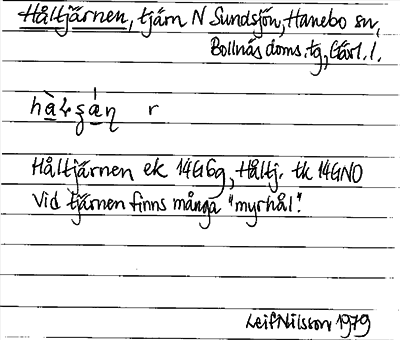 Håltjärnen, tjärn N Sundsjön, Hanebo sn,
Bollnäs doms.tg, Gävl. l.
r
Håltjärnen ek 14G6g, Håltj. tk 14GNO
Vid tjärnen finns många "myrhål".
Leif Nilsson 1979